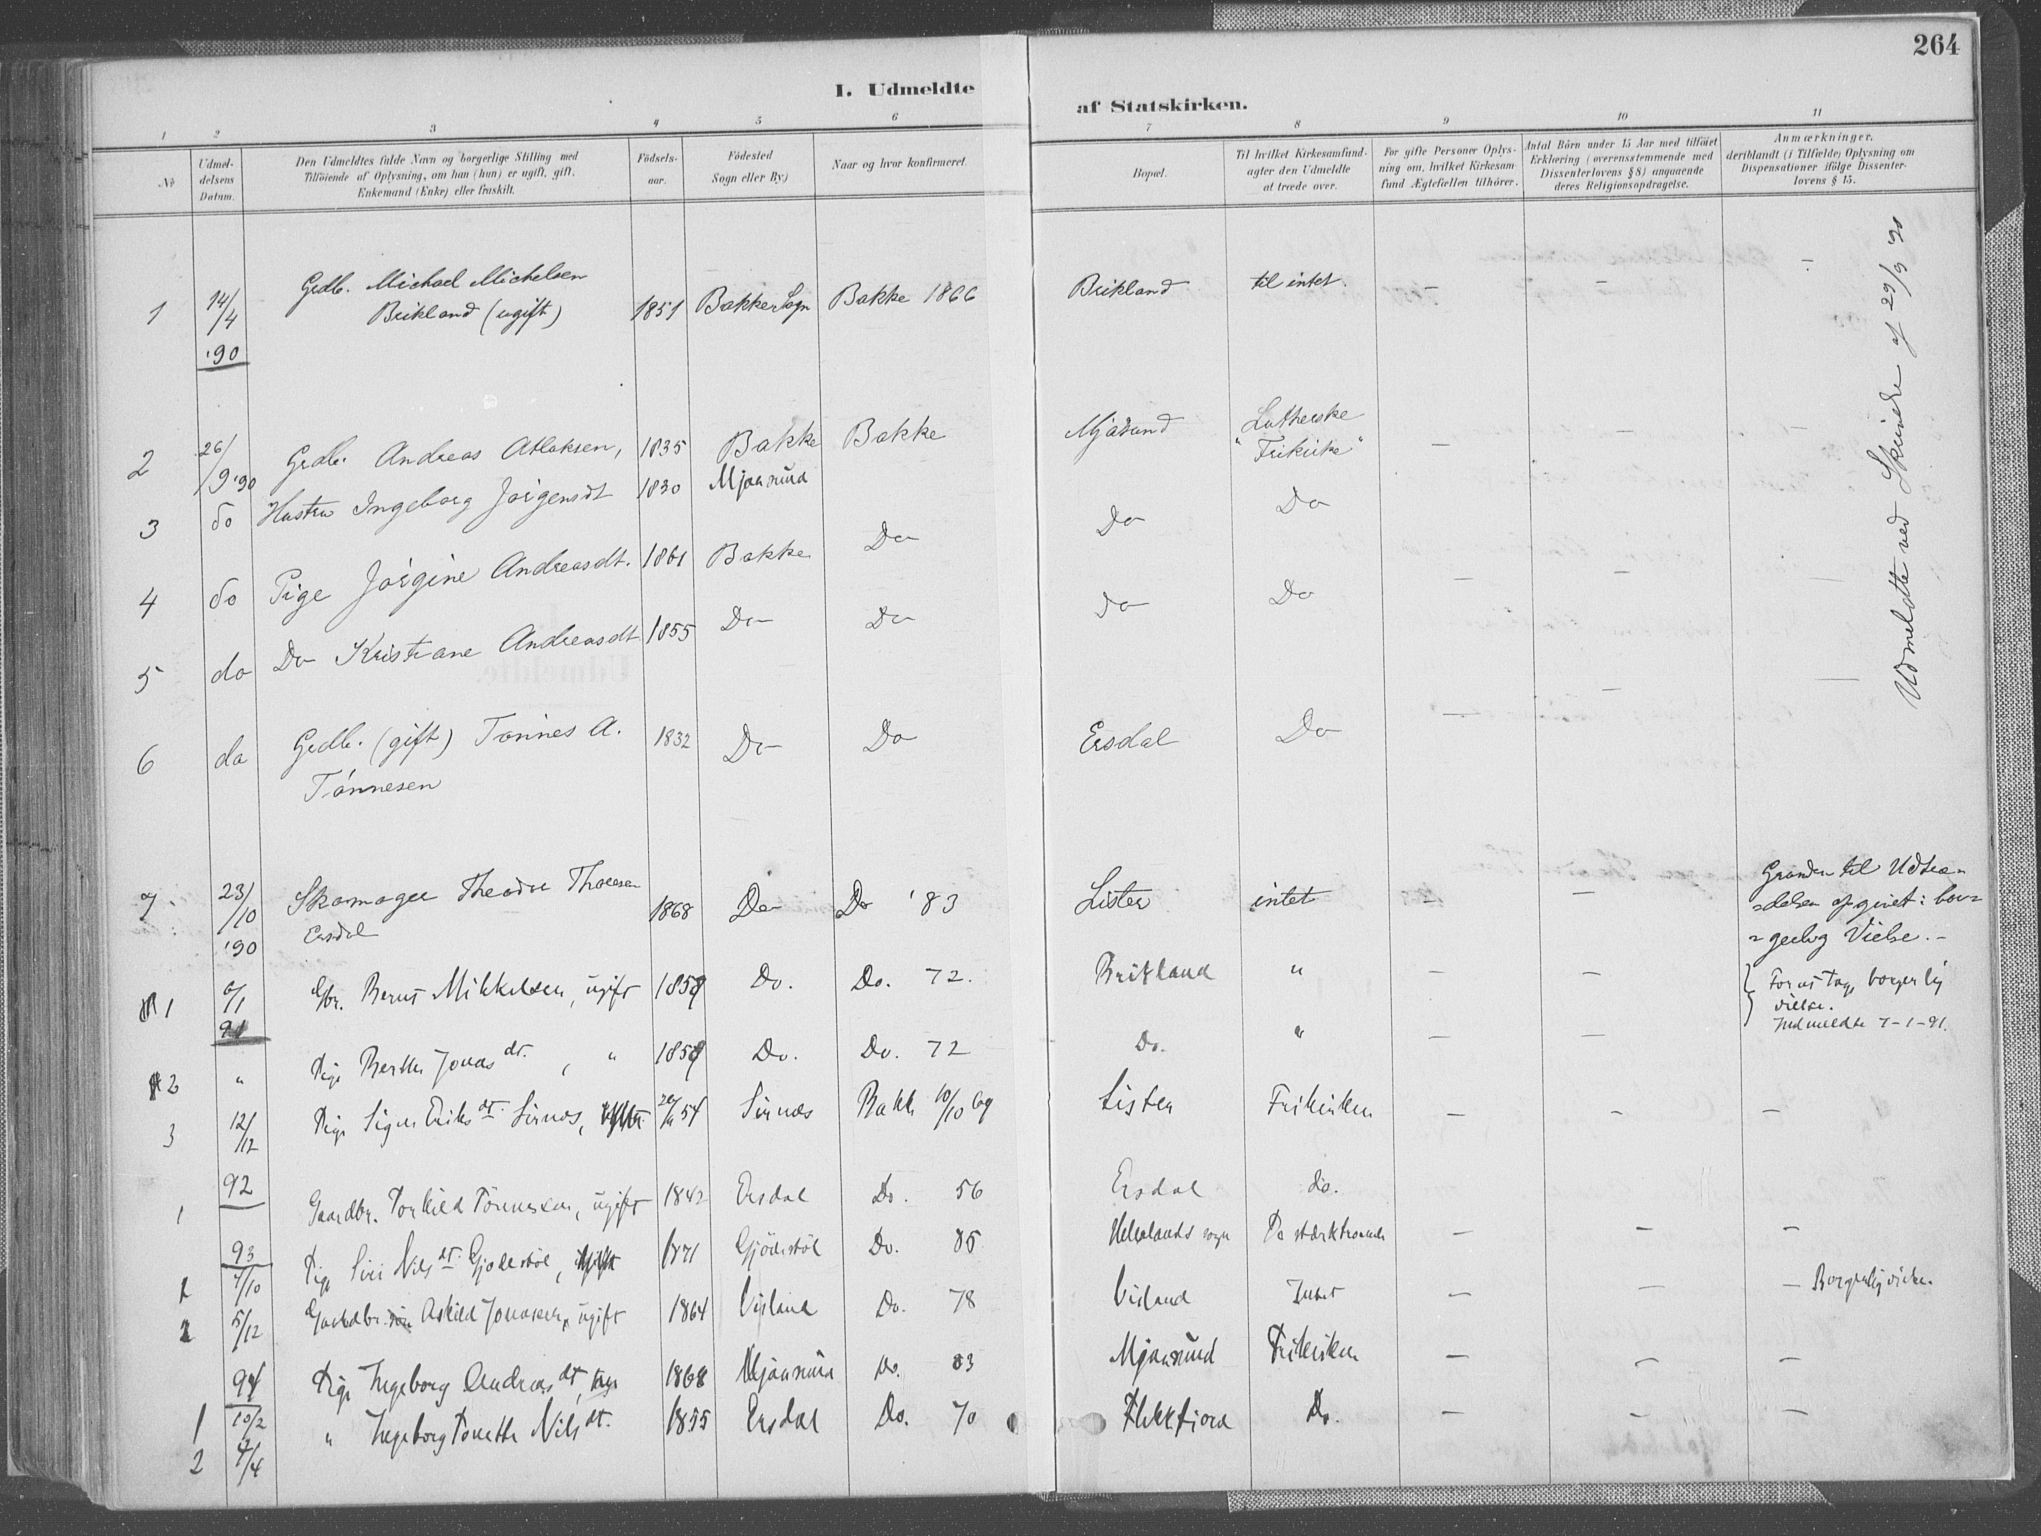 264
I. Udmeldte af Statskirken.
1 2 3 4 5 6 7 8 9 10 11
No
Udmeldelsens Datum.
Den Udmeldtes fulde Navn og borgerlige Stilling med
Tilföiende af Oplysning, om han (hun) er ugift, gift,
Enkemand (Enke) eller fraskilt.
Födselsaar.
Födested
Sogn eller By)
Naar og hvor konfirmeret
Bopæl.
Til hvilket Kirkesamfund-
agter den Udmeldte
at træde over.
For gifte Personer Oplys-
ning om, hvilket Kirkesam
fund Ægtefællen tilhörer.
Antal Börn under 15 Aar med tilföiet
Erklæring (overensstemmende med
Dissenterlovens § 8) angaaende
deres Religionsopdragelse.
Anmærkninger.
deriblandt (i Tilfælde) Oplysning om
Dispensationer ifölge Dissenter-
lovens § 15.
1 14/4 '90 Grdb. Michael Michelsen
Beikland (ugift) 1851 Bakke Sogn Bakke 1866 Beikland til intet. - - -
2 26/9 '90 Grdb. Andreas Atlaksen, 1835 Bakke Bakke Mjåsund Lutherske
"Frikirke" - - -
3 do Hustru Ingeborg Jörgensdt 1830 Mjaasund Do Do Do
4 do Pige Jörgine Andreasdt. 1861 Bakke Do Do Do - - -
5 do Do Kristiane Andreasdt 1855 Do Do
6 do Grdb. (gift) Tönnes A.
Tönnesen 1832 Do Do Ersdal Do - - -
Udmeldte ved Skrivelse af 29/9 '90
7. 23/10 '90 Skomager Theodor Thorsen
Ersdal 1868 Do Do '83 Lister intet - -
Grunden til Udtræ-
=delsen opgivet: bor=
=gerlig Vielse. -
1 91 Gbr. Bernt Mikkelsen, ugift 1859 Do. Do. 72. " - -
For at tage borgerlig
vielse.
Indmeldte 7-1-91.
2 " Pige Berthe Jonasdt. , " 1859 Do. Do. 72 Do. " - -
3 12/12 Pige Signe Eriksdt. Sirnæs, 54 Sirnæs Bakke 10/10 69 Lister Frikirken - - -
92
1 Gaardbr. Torkild Tönnesen, ugift 1842 Ersdal Do. 56 Ersdal do.
93
1 7/10 Pige Siri Nilsdt. Gjödestöl, 1871 Gjödestöl Do. 85 sogn - - -
2 5/12 Gaardbr. sön Askild Jonassen, ugift 1864 Virland Do. 78 Virland Intet - - - Borgerlig vielse.
94
1 10/2 Pige Ingeborg Andreasdt, 1868 Mjaasund Do. 83 Mjaasund Frikirken - - -
2 4/4 " Ingeborg Tonette Nilsdt. 1855 Ersdal Do. 70 Flekkfjord Do. - - -